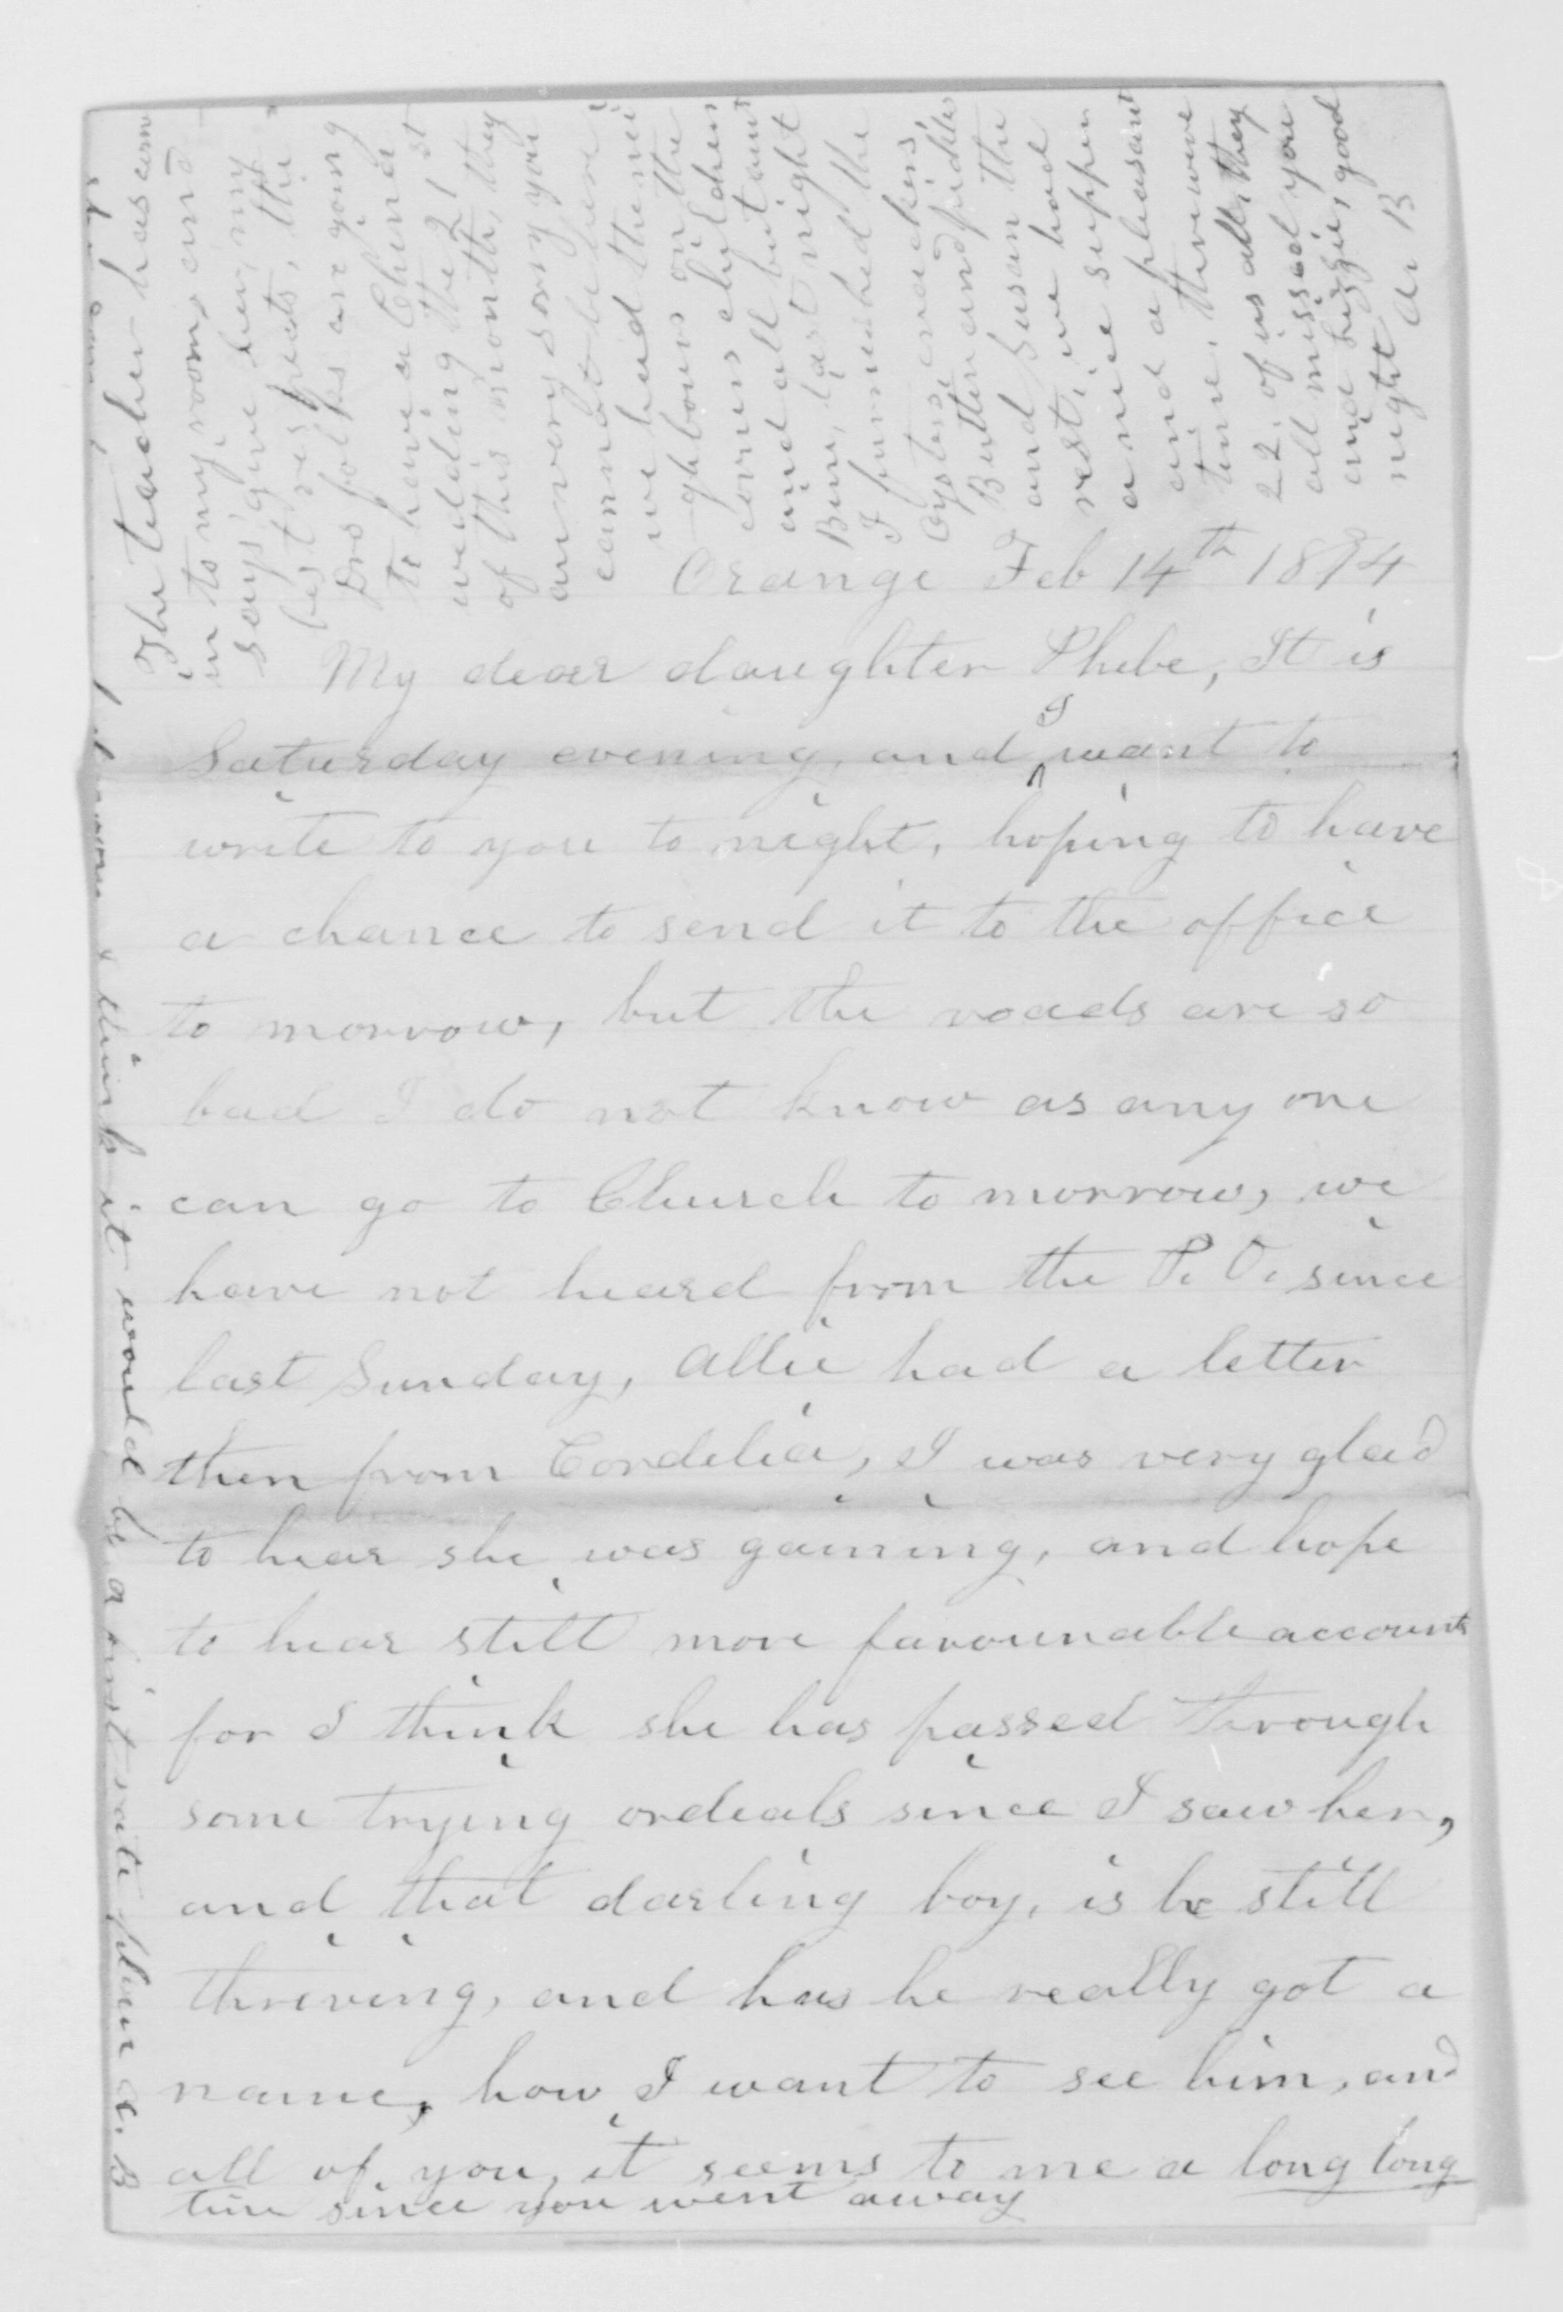 Orange Feb 14th 1874
My dear daughter Phebe, It is
Saturday evening, and I want to
write to you to night, hoping to have
a chance to send it to the office
to morrow, but the roads are so
bad I do not know as any one
can go to Church to morrow, we
have not heard from the P. O. since
last Sunday, Allie had a letter
then from Cordelia, I was very glad
to hear she was gaining, and hope
to hear still more favourable accounts
for I think she has passed through
some trying ordeals since I saw her,
and that darling boy, is he still
thriving, and has he really got a
name, how I want to see him, and
all of you, it seems to me a long long
time since you went away
The teacher has com
in to my room, and
says give her my
best regards, the
Drs folks are going
to have a China
wedding the 21st
of this month, they
are very sorry you
cannot be here,
we had the nei
ghbours on the
corners children
and all but aunt
Bun, last night
I furnished the
Oysters crackers,
Butter and pickles
and Susan the
rest, we had
a nice supper
and a pleasant
time, there were
22, of us all, they
all missed you
and Lizzie, good
night A. B
I think it would be a first rate plan A. B